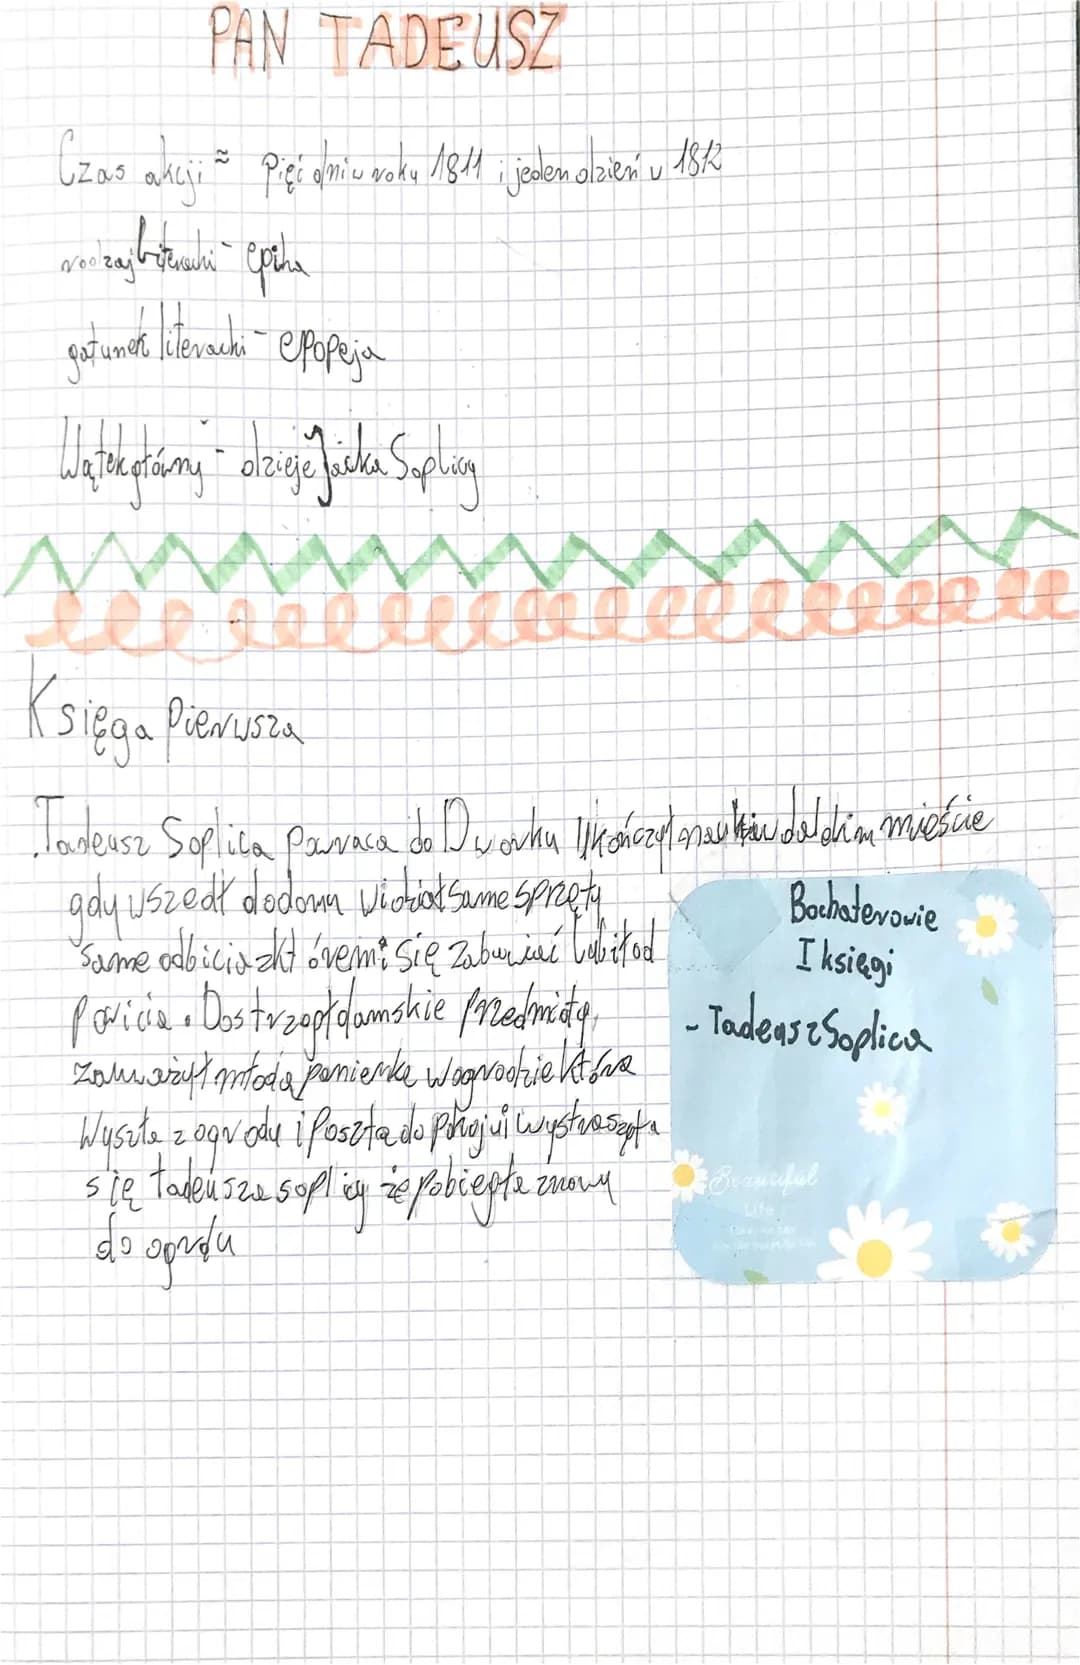 PAN TADEUSZ
Czas akcji ≈ Pięć dni w roku 1811 i jeden dzień w 1812
rodzaj literacki - epika
gatunek literacki - epopeja
Wątek główny - dzieje Jacka Soplicy
Księga Pierwsza
Tadeusz Soplica powraca do Dworku Ukończył nauki w dalekim mieście
gdy wszedł do domu widział same sprzęty
same odbicia z któremi się zabawiać lubił od
powicia. Dostrzegł damskie przedmioty,
zauważył młodą panienkę w ogrodzie która
Wyszła z ogrodu i poszła do pokoju i wystraszyła
się tadeusza soplicy że pobiegła znowy
do ogrdu
Bochaterowie
I księgi
- Tadeusz Soplica
Beautiful
Life